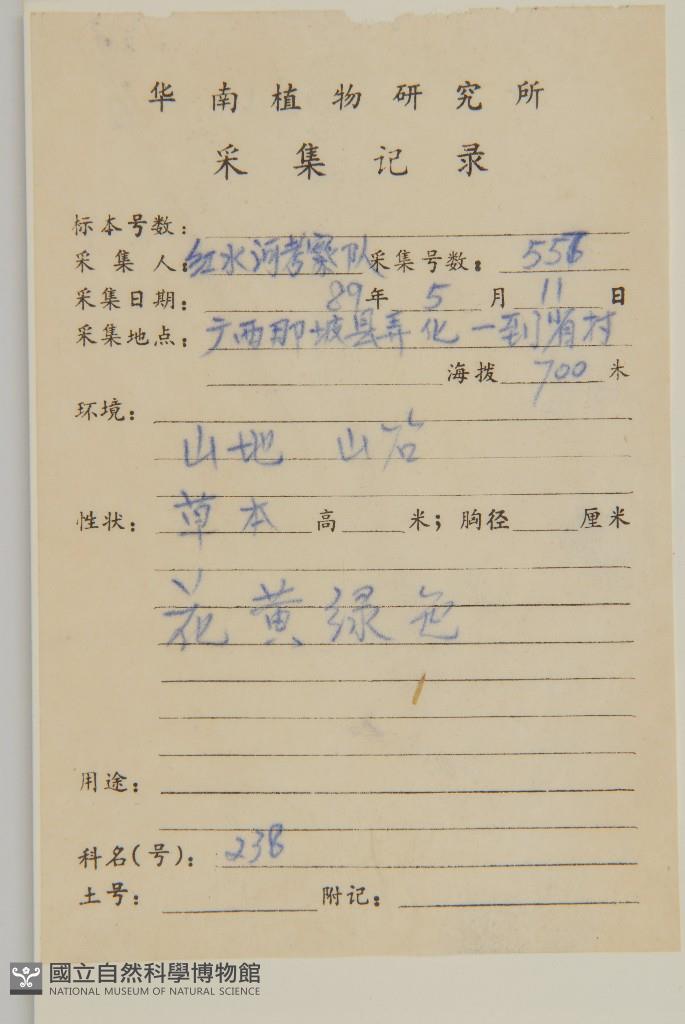 华南植物研究所
采集记录
标本号数：
采集人：红水河考察队 采集号数：556
采集日期：89年 5 月 11 日
采集地点：广西那坡县弄化一到省村
海拨 700 米
环境：
山地 山谷
性状：草本 高 米；胸径 厘米
花黄绿色
用途：
科名(号)：238
土号： 附记：
國立自然科學博物館
NATIONAL MUSEUM OF NATURAL SCIENCE